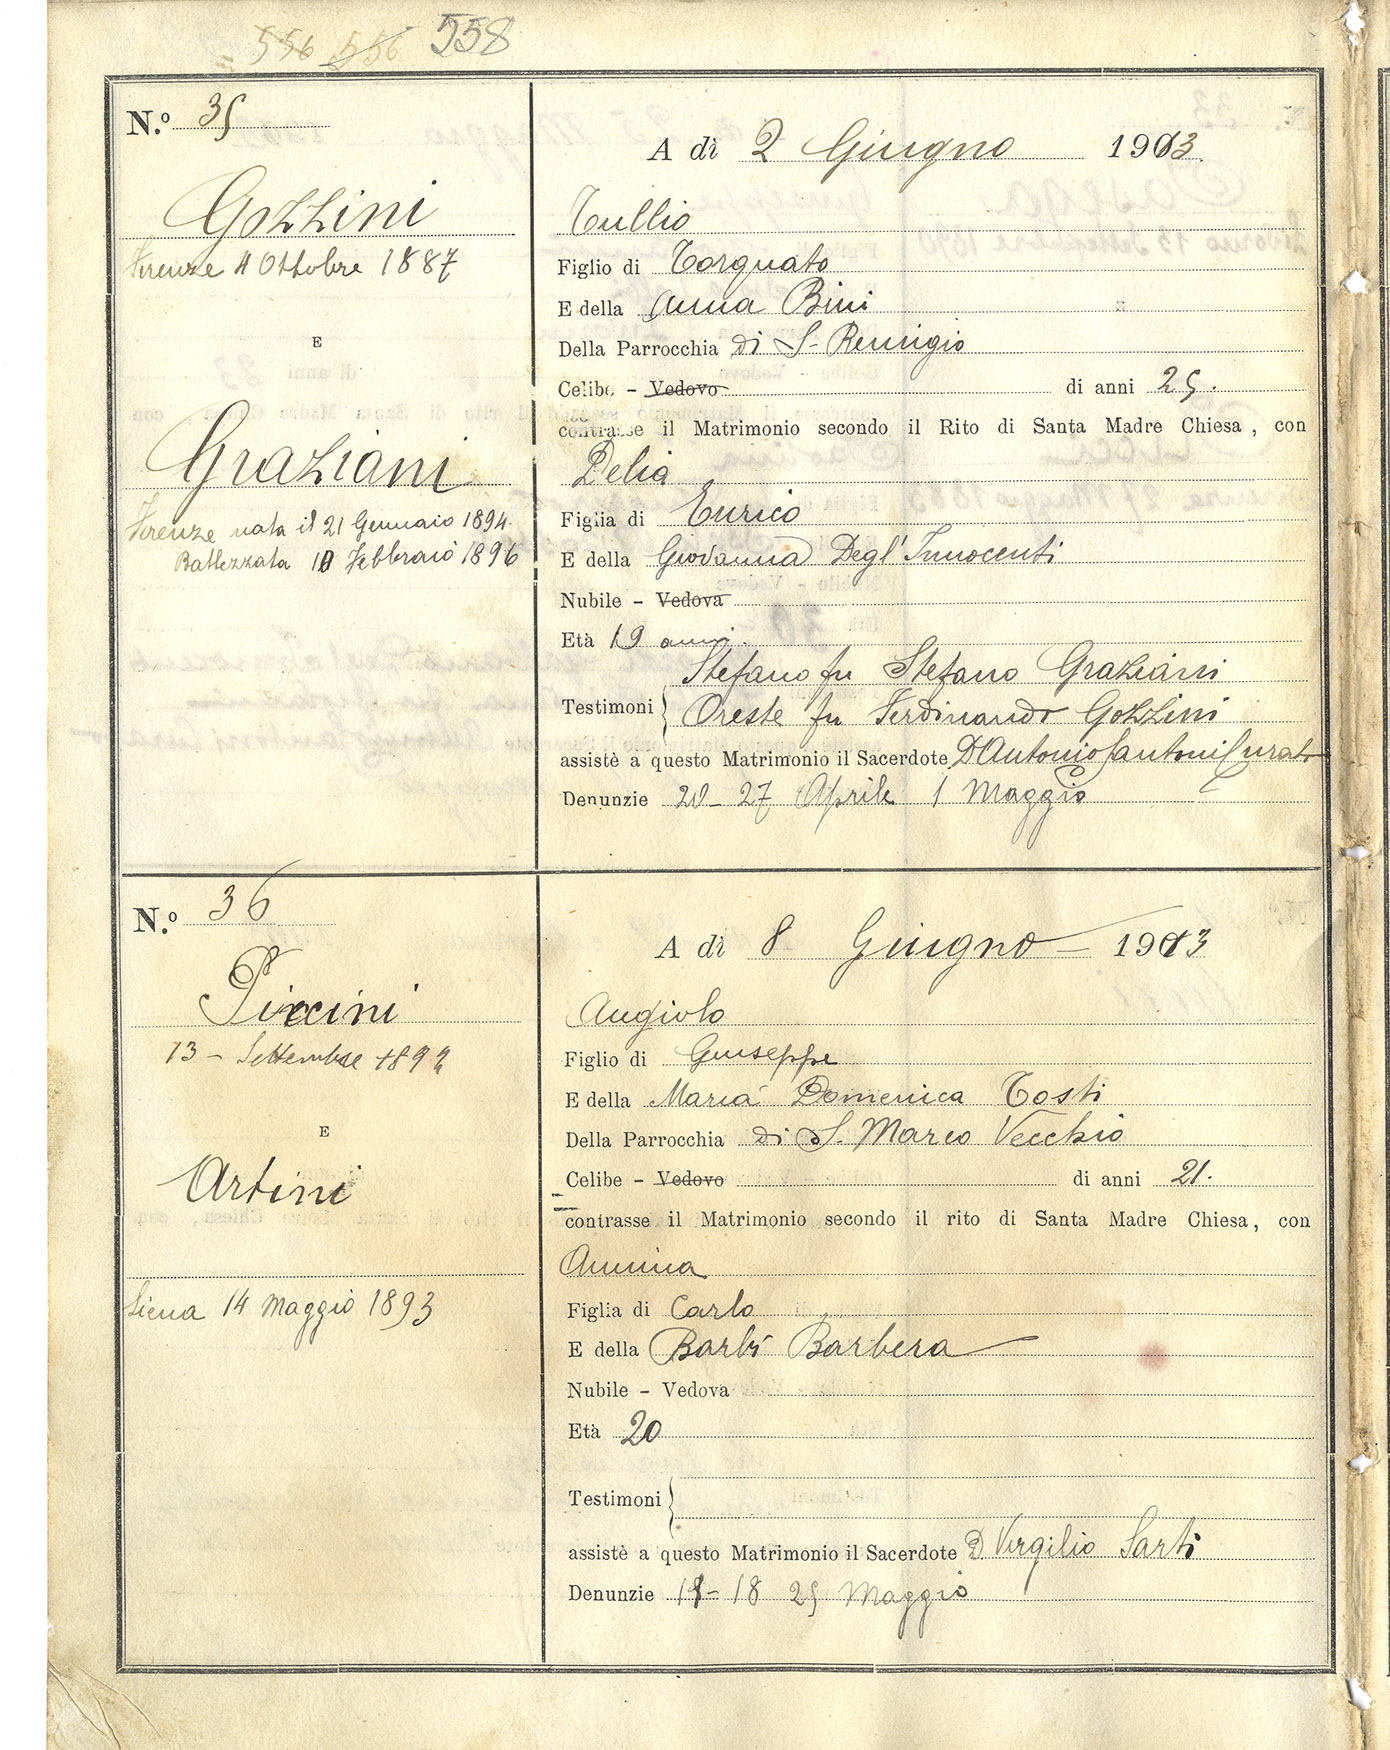 556 556 558
N.º 35
Gozzini
Firenze 4 Ottobre 1887
E
Graziani
Firenze nata il 21 Gennaio 1894.
Battezzata 10 Febbraio 1896
A dì 2 Giugno 1913.
Tullio
Figlio di Torquato
E della Anna Bini
Della Parrocchia di S. Remigio
Celibe - Vedovo di anni 25.
contrasse il Matrimonio secondo il Rito di Santa Madre Chiesa, con
Delia
Figlia di Enrico
E della Giovanna Degl'Innocenti
Nubile - Vedova
Età 19 anni.
Stefano fu Stefano Graziani
Testimoni
Oreste fu Ferdinando Gozzini
assistè a questo Matrimonio il Sacerdote D Antonio Santoni Curato
Denunzie 20 - 27 Aprile 1 Maggio
N.º 36
Piccini
13 - Settembre 1892
E
Artini
Siena 14 Maggio 1893
A dì 8 Giugno 1913
Angiolo
Figlio di Giuseppe
E della Maria Domenica Tosti
Della Parrocchia di S. Marco Vecchio
Celibe - Vedovo di anni 21.
contrasse il Matrimonio secondo il rito di Santa Madre Chiesa, con
Annina
Figlia di Carlo
E della Barbi Barbera
Nubile - Vedova
Età 20
Testimoni
assistè a questo Matrimonio il Sacerdote D Virgilio Sarti
Denunzie - 18 25 Maggio